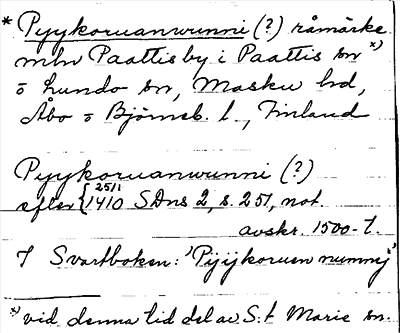 * Pyykoruanwunni (?) råmärke
mln Paattisby i Paattis sn x)
o Lundo sn, Masku hd,
Åbo o Björneb. l., Finland
Pyykoruanwunni (?)
efter { 25/1 1410 SDns 2, s. 251, not.
avskr. 1500-t.
I Svartboken: 'Pijijkoruen nummj'
x) vid denna tid del av S:t Marie sn.